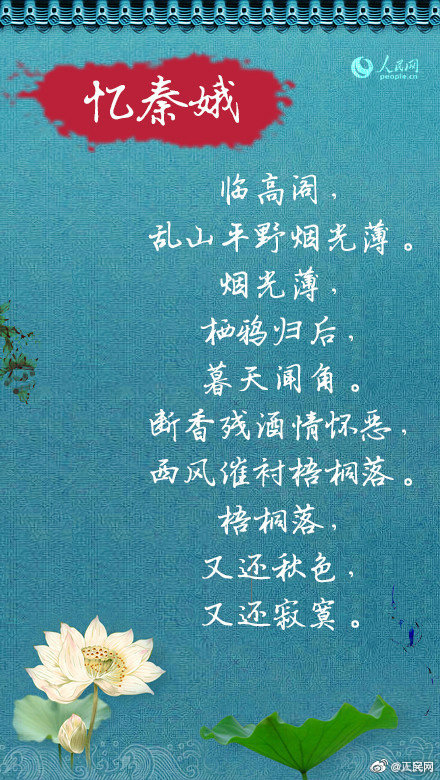 人民网
people.cn
忆秦娥
临高阁，
乱山平野烟光薄。
烟光薄，
栖鸦归后，
暮天闻角。
断香残酒情怀恶，
西风催衬梧桐落。
梧桐落，
又还秋色，
又还寂寞。
@正民网